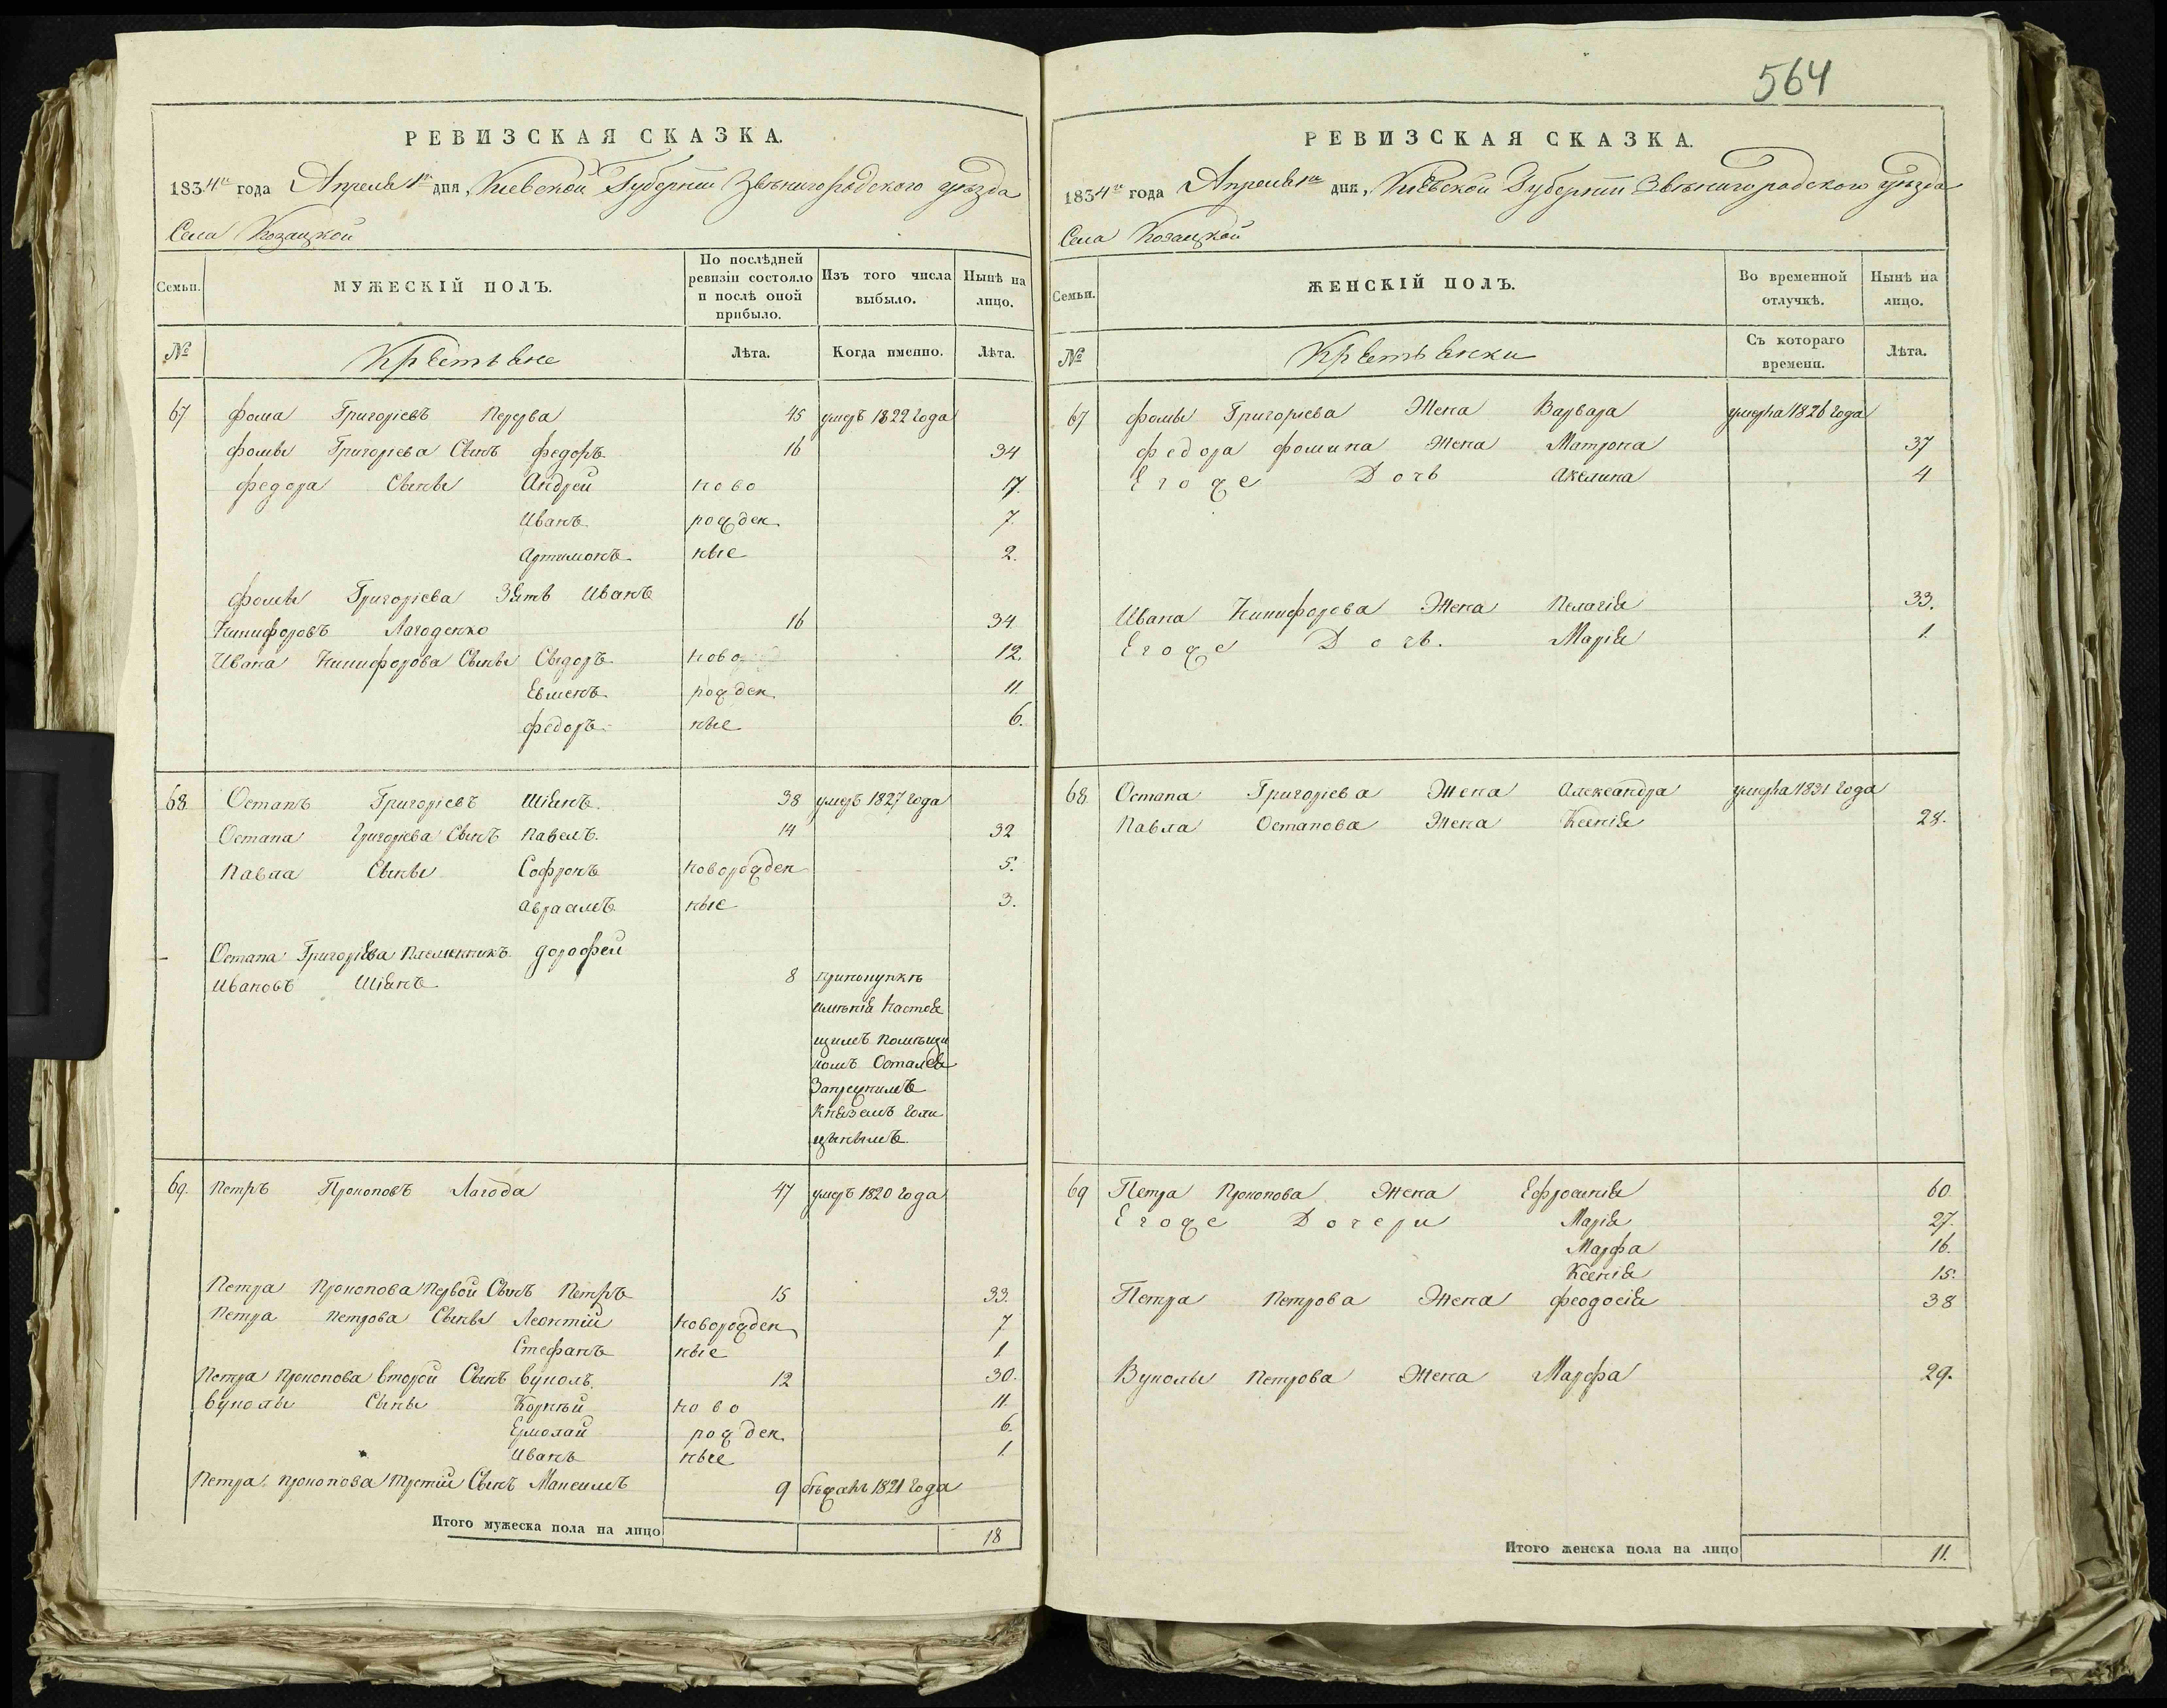 РЕВИЗСКАЯ СКАЗКА.
1834го года Апреля 1го дня, Киевской Губернии Звѣнигородского уѣзда
Села Козацкой
Семьи.
МУЖЕСКІЙ ПОЛЪ.
По послѣдней ревизіи состояло и послѣ оной прибыло.
Изъ того числа выбыло.
Нынѣ на лицо.
№
Крестьяне
Лѣта.
Когда именно.
Лѣта.
67 Фома Григоріевъ Перерва 45 умеръ 1822 года
Фомы Григоріева Сынъ Федоръ 16 34
Федора Сыны Андрей ново 17.
Иванъ рожден 7.
Артимонъ ные 2.
Фомы Григоріева Зять Иванъ
Никифоровъ Лагоденко 16 34
Ивана Никифорова Сыны Сыдоръ ново 12.
Евменъ рожден 11.
Федоръ ные 6.
68 Остапъ Григоріевъ Шіянъ 38 умеръ 1827 года
Остапа Григорієва Сынъ Павелъ 14 32
Павла Сыны Софронъ новорожден 5.
Авраамъ ные 3.
Остапа Григоріева Племянникъ Дорофей
Ивановъ Шіянъ 8 припокупкѣ
имѣнія настоя
щимъ помѣщи
комъ Остался
За прежнимъ
Княземъ Голи
цынымъ
69. Петръ Прокоповъ Лагода 47 умеръ 1820 года
Петра Прокопова Первой Сынъ Петръ 15 33.
Петра Петрова Сыны Леонтій новорожден 7
Стефанъ ные 1
Петра Прокопова второй Сынъ Вуколъ 12 30.
Вуколы Сыны Корнѣй ново 11.
Ермолай рожден 6.
Иванъ ные 1.
Петра Прокопова Третій Сынъ Максимъ 9 бѣжалъ 1821 года
Итого мужеска пола на лицо 18
564
РЕВИЗСКАЯ СКАЗКА.
1834го года Апреля 1го дня, Киевской Губернии Звѣнигородского уѣзда
Села Козацкой
Семьи.
ЖЕНСКІЙ ПОЛЪ.
Во временной отлучкѣ.
Нынѣ на лицо.
№
Крестьянки
Съ котораго времени.
Лѣта.
67 Фомы Григорієва Жена Варвара умерла 1826 года
Федора Фомина Жена Матрона 37
Егоже Дочь Акелина 4
Ивана Никифорова Жена Пелагія 33.
Егоже Дочь. Марія 1.
68 Остапа Григоріева Жена Александра умерла 1831 года
Павла Остапова Жена Ксенія 28.
69 Петра Прокопова Жена Ефросинія 60.
Егоже Дочери Марія 27.
Марфа 16.
Ксенія 15.
Петра Петрова Жена Феодосія 38
Вуколы Петрова Жена Марфа 29.
Итого женска пола на лицо 11.